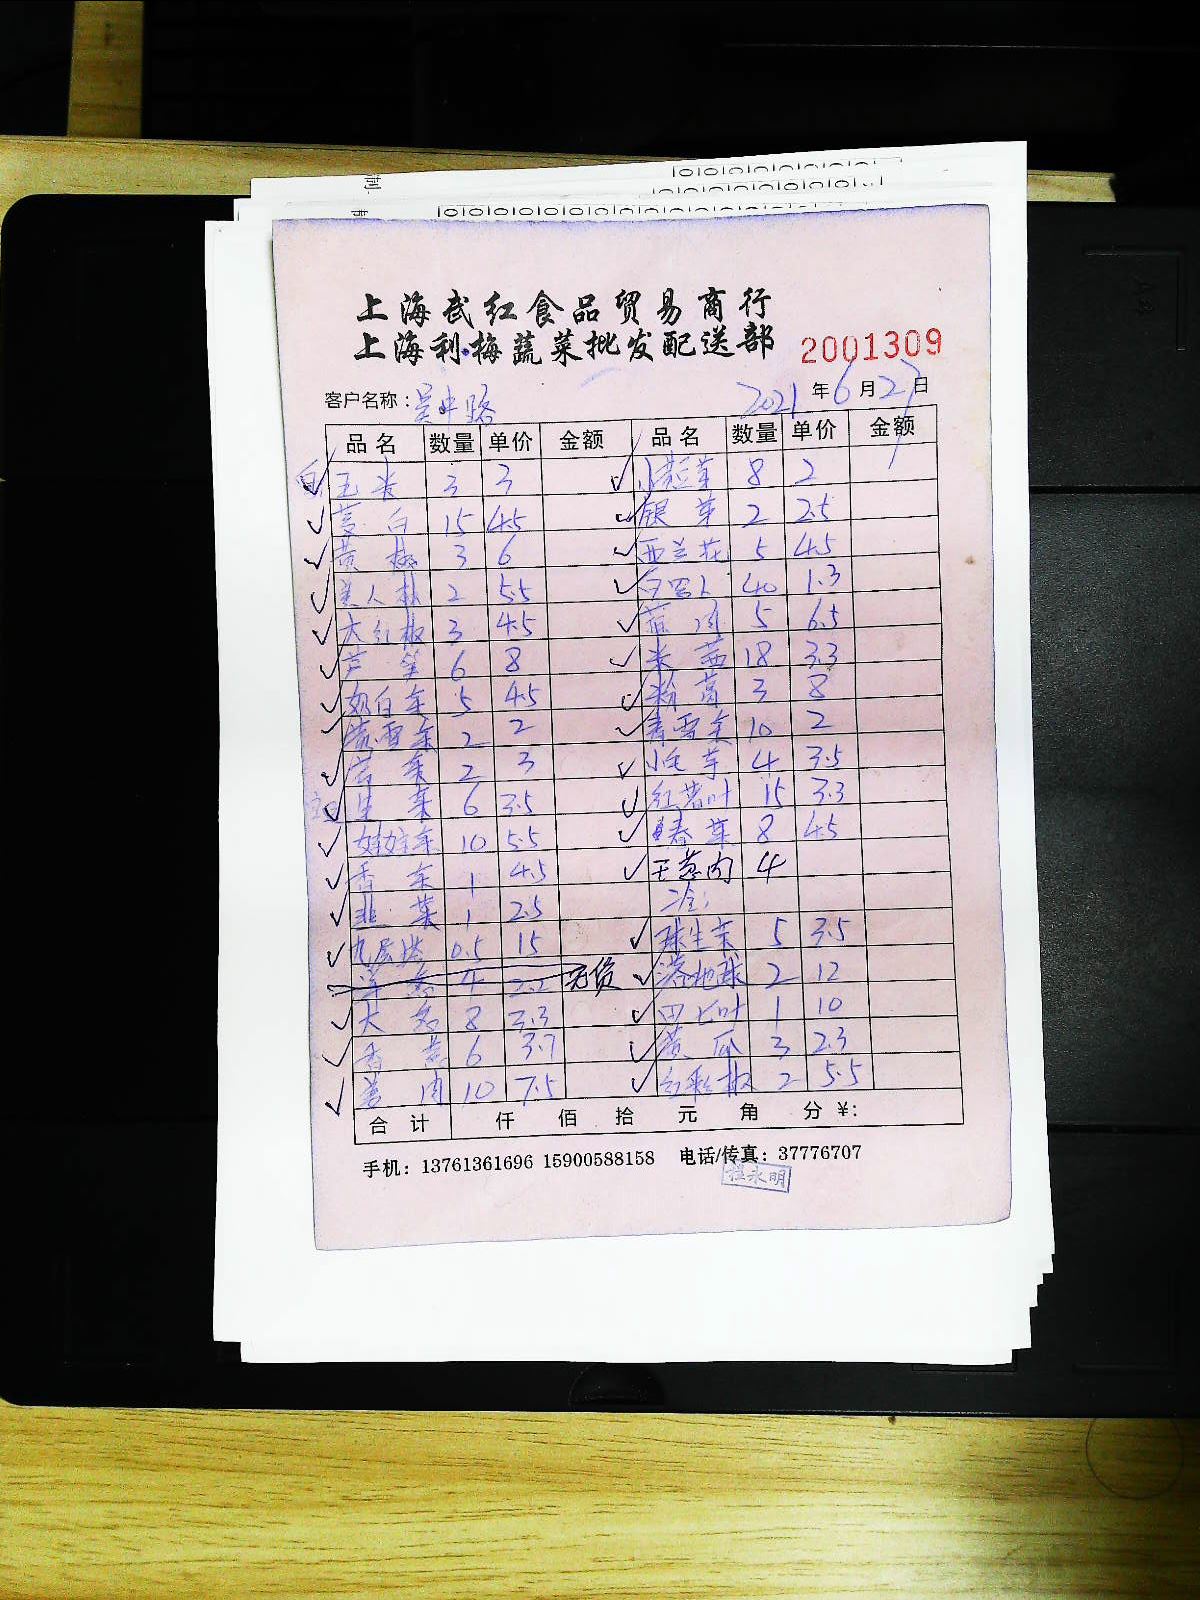 上海武红食品贸易商行
上海利梅蔬菜批发配送部
2001309
客户名称：吴中路 2021年6月27日
品名 数量 单价 金额 品名 数量 单价 金额
白玉米 3 3 8 2
茭白 15 4.5 银芽 2 2.5
黄椒 3 6 西兰花 5 4.5
美人椒 2 5.5 40 1.3
大红椒 3 4.5 5 6.5
芦笋 6 8 米茜 18 3.3
奶白菜 5 4.5 粉葛 3 8
2 2 10 2
2 3 小毛芋 4 3.5
生菜 6 3.5 红苕叶 15 3.3
娃娃菜 10 5.5 春菜 8 4.5
香菜 1 4.5 干葱肉 4
韭菜 1 2.5
九层塔 0.5 15 球生菜 5 3.5
洋葱 4 2.2 无货 港地球 2 12
大葱 8 3.3 1 10
香葱 6 3.7 黄瓜 3 2.3
姜肉 10 7.5 红彩椒 2 5.5
合计 仟 佰 拾 元 角 分 ¥:
手机：13761361696 15900588158 电话/传真：37776707
程永明